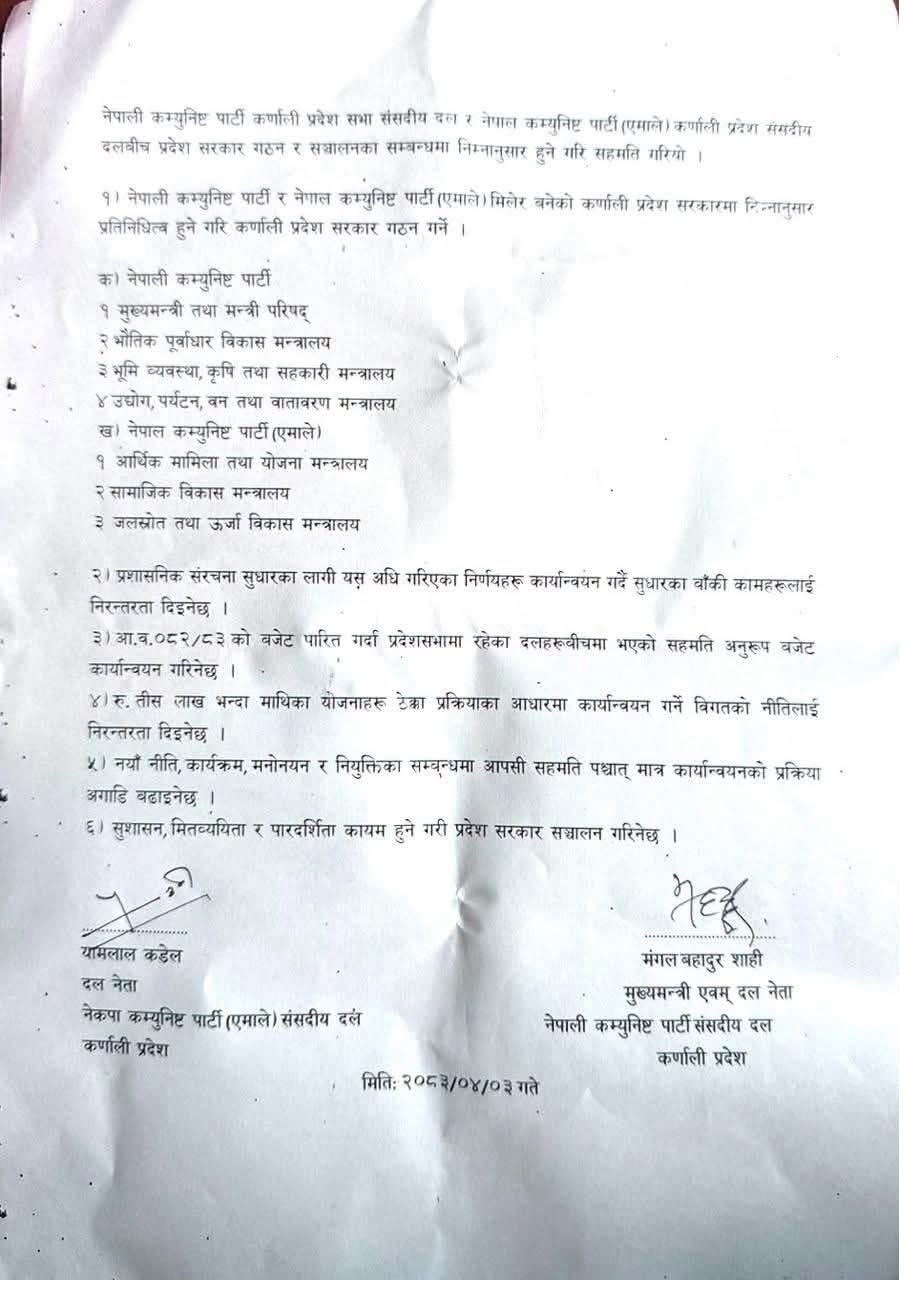 नेपाली कम्युनिष्ट पार्टी कर्णाली प्रदेश सभा संसदीय दल र नेपाल कम्युनिष्ट पार्टी(एमाले) कर्णाली प्रदेश संसदीय
दलबीच प्रदेश सरकार गठन र सञ्चालनका सम्बन्धमा निम्नानुसार हुने गरि सहमति गरियो ।
१) नेपाली कम्युनिष्ट पार्टी र नेपाल कम्युनिष्ट पार्टी(एमाले) मिलेर बनेको कर्णाली प्रदेश सरकारमा निम्नानुसार
प्रतिनिधित्व हुने गरि कर्णाली प्रदेश सरकार गठन गर्ने ।
क) नेपाली कम्युनिष्ट पार्टी
१ मुख्यमन्त्री तथा मन्त्री परिषद्
२ भौतिक पूर्वाधार विकास मन्त्रालय
३ भूमि व्यवस्था, कृषि तथा सहकारी मन्त्रालय
४ उद्योग, पर्यटन, वन तथा वातावरण मन्त्रालय
ख) नेपाल कम्युनिष्ट पार्टी(एमाले)
१ आर्थिक मामिला तथा योजना मन्त्रालय
२ सामाजिक विकास मन्त्रालय
३ जलस्रोत तथा ऊर्जा विकास मन्त्रालय
२) प्रशासनिक संरचना सुधारका लागी यस अघि गरिएका निर्णयहरू कार्यान्वयन गर्दै सुधारका बाँकी कामहरूलाई
निरन्तरता दिइनेछ ।
३) आ.व.०८२/८३ को बजेट पारित गर्दा प्रदेशसभामा रहेका दलहरूबीचमा भएको सहमति अनुरूप बजेट
कार्यान्वयन गरिनेछ ।
४) रु. तीस लाख भन्दा माथिका योजनाहरू ठेक्का प्रक्रियाका आधारमा कार्यान्वयन गर्ने विगतको नीतिलाई
निरन्तरता दिइनेछ ।
५) नयाँ नीति, कार्यक्रम, मनोनयन र नियुक्तिका सम्बन्धमा आपसी सहमति पश्चात् मात्र कार्यान्वयनको प्रक्रिया
अगाडि बढाइनेछ ।
६) सुशासन, मितव्ययिता र पारदर्शिता कायम हुने गरी प्रदेश सरकार सञ्चालन गरिनेछ ।
यामलाल कडेल
मंगल बहादुर शाही
दल नेता
मुख्यमन्त्री एवम् दल नेता
नेकपा कम्युनिष्ट पार्टी (एमाले) संसदीय दल
नेपाली कम्युनिष्ट पार्टी संसदीय दल
कर्णाली प्रदेश
कर्णाली प्रदेश
मिति: २०८३/०४/०३ गते